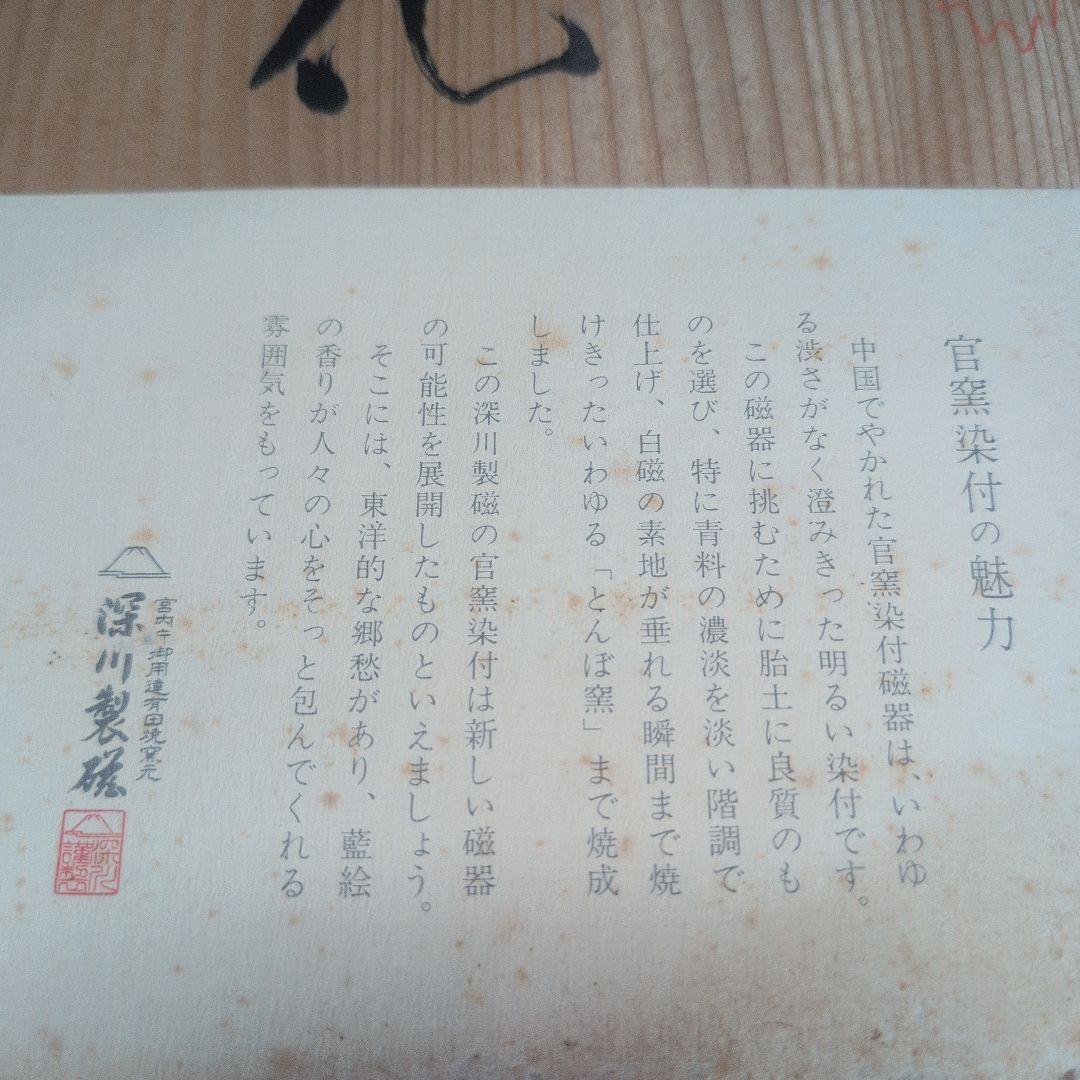 花
官窯染付の魅力
中国でやかれた官窯染付磁器は、いわゆ
る渋さがなく澄みきった明るい染付です。
この磁器に挑むために胎土に良質のも
のを選び、特に青料の濃淡を淡い階調で
仕上げ、白磁の素地が垂れる瞬間まで焼
けきったいわゆる「とんぼ窯」まで焼成
しました。
この深川製磁の官窯染付は新しい磁器
の可能性を展開したものといえましょう。
そこには、東洋的な郷愁があり、藍絵
の香りが人々の心をそっと包んでくれる
雰囲気をもっています。
宮内庁御用達有田焼窯元
深川製磁
深川謹製